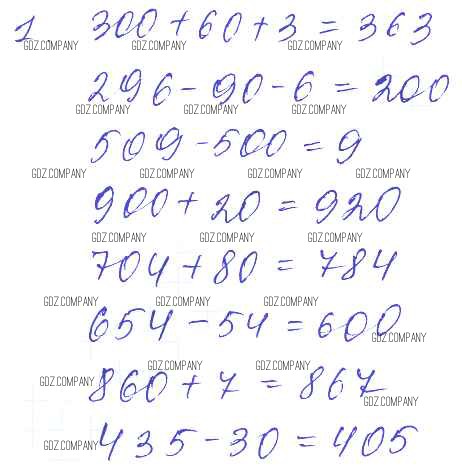 1 300 + 60 + 3 = 363
GDZ.COMPANY GDZ.COMPANY GDZ.COMPANY
296 - 90 - 6 = 200
GDZ.COMPANY GDZ.COMPANY GDZ.COMPANY
509 - 500 = 9
GDZ.COMPANY GDZ.COMPANY GDZ.COMPANY GDZ.COMPANY
900 + 20 = 920
GDZ.COMPANY GDZ.COMPANY GDZ.COMPANY
704 + 80 = 784
GDZ.COMPANY GDZ.COMPANY GDZ.COMPANY
654 - 54 = 600
GDZ.COMPANY
GDZ.COMPANY GDZ.COMPANY
GDZ.COMPANY 860 + 7 = 867
GDZ.COMPANY
GDZ.COMPANY 435 - 30 = 405